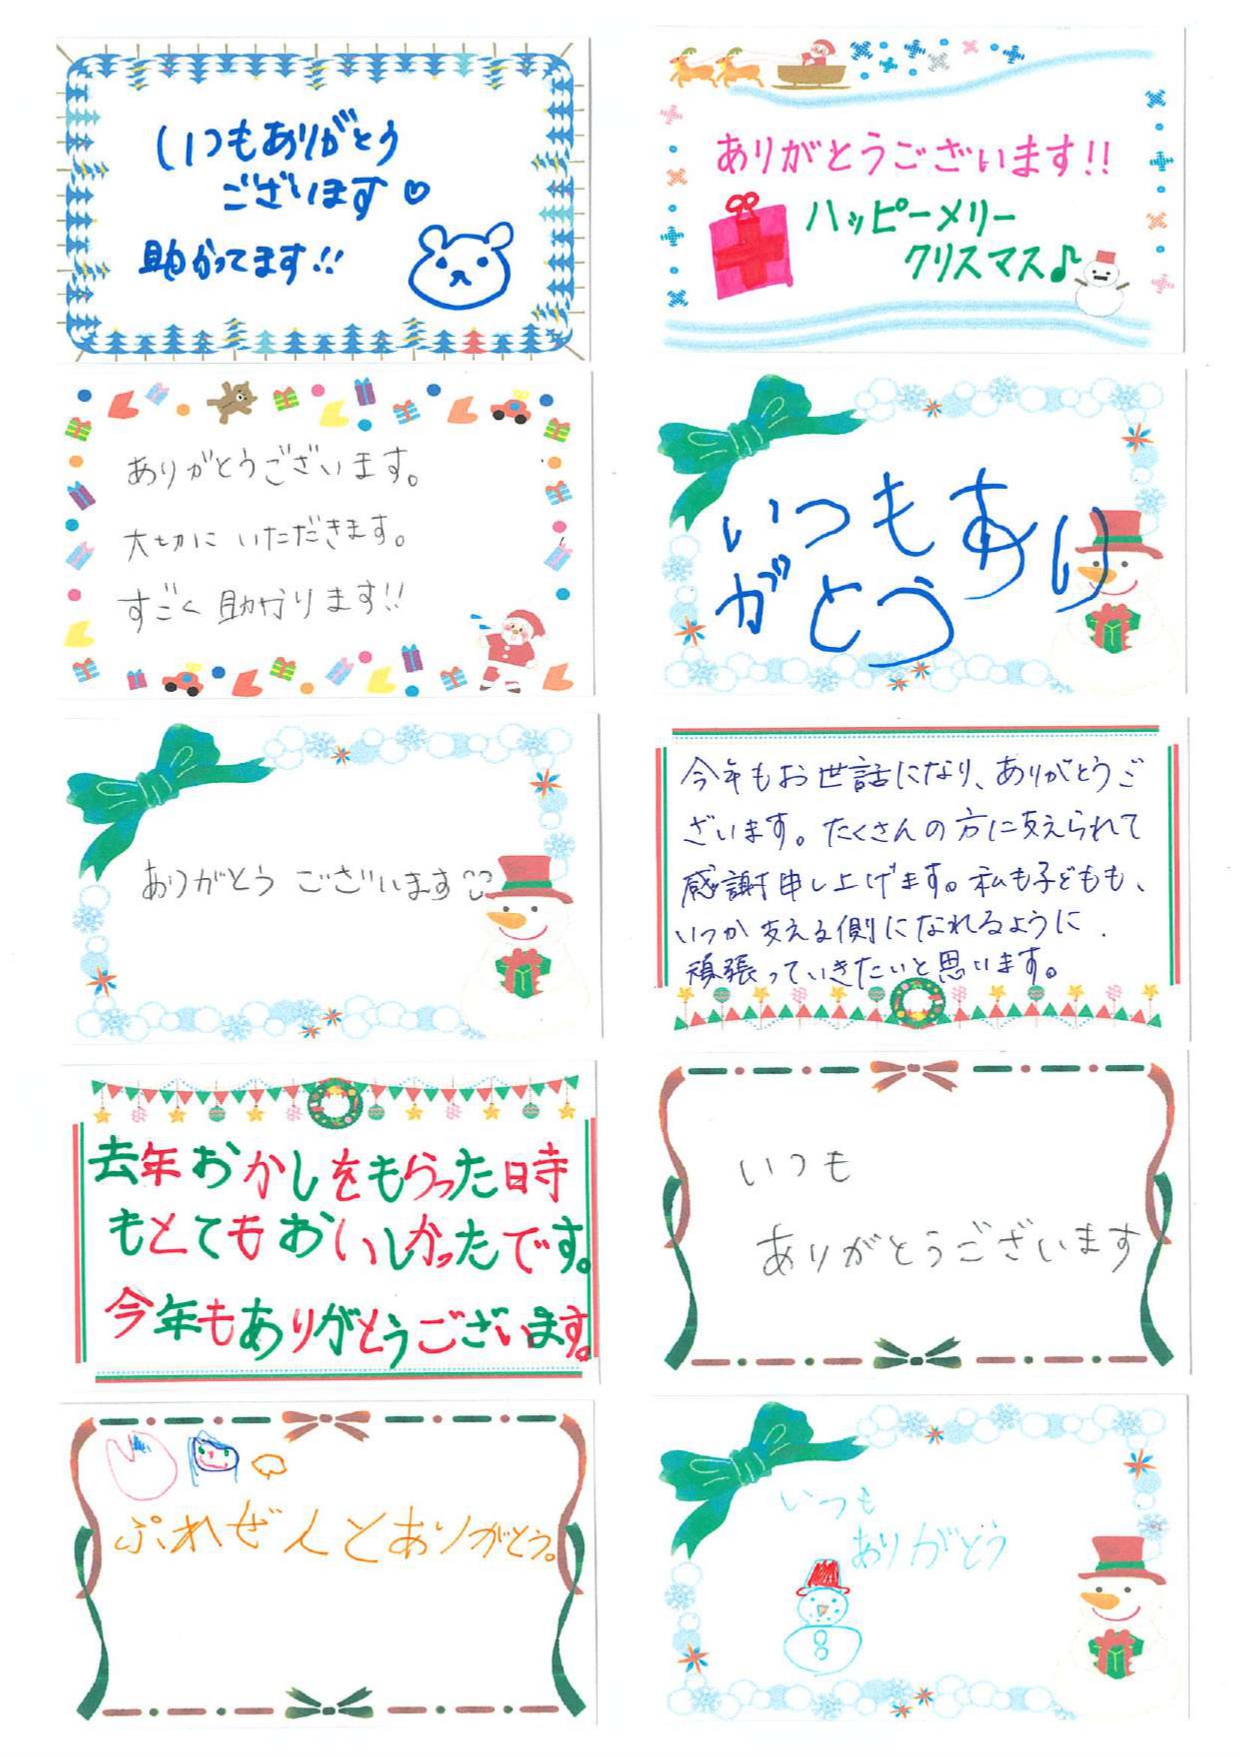 いつもありがとう
ございます♡
助かってます!!
ありがとうございます!!
ハッピーメリー
クリスマス♪
ありがとうございます。
大切に いただきます。
すごく 助かります!!
いつもあり
がとう
ありがとう ございます
今年もお世話になり、ありがとうご
ざいます。たくさんの方に支えられて
感謝申し上げます。私も子どもも、
いつか支える側になれるように
頑張っていきたいと思います。
去年おかしをもらった時
もとてもおいしかったです。
今年もありがとうございます。
いつも
ありがとうございます
ぷれぜんとありがとう。
いつも
ありがとう